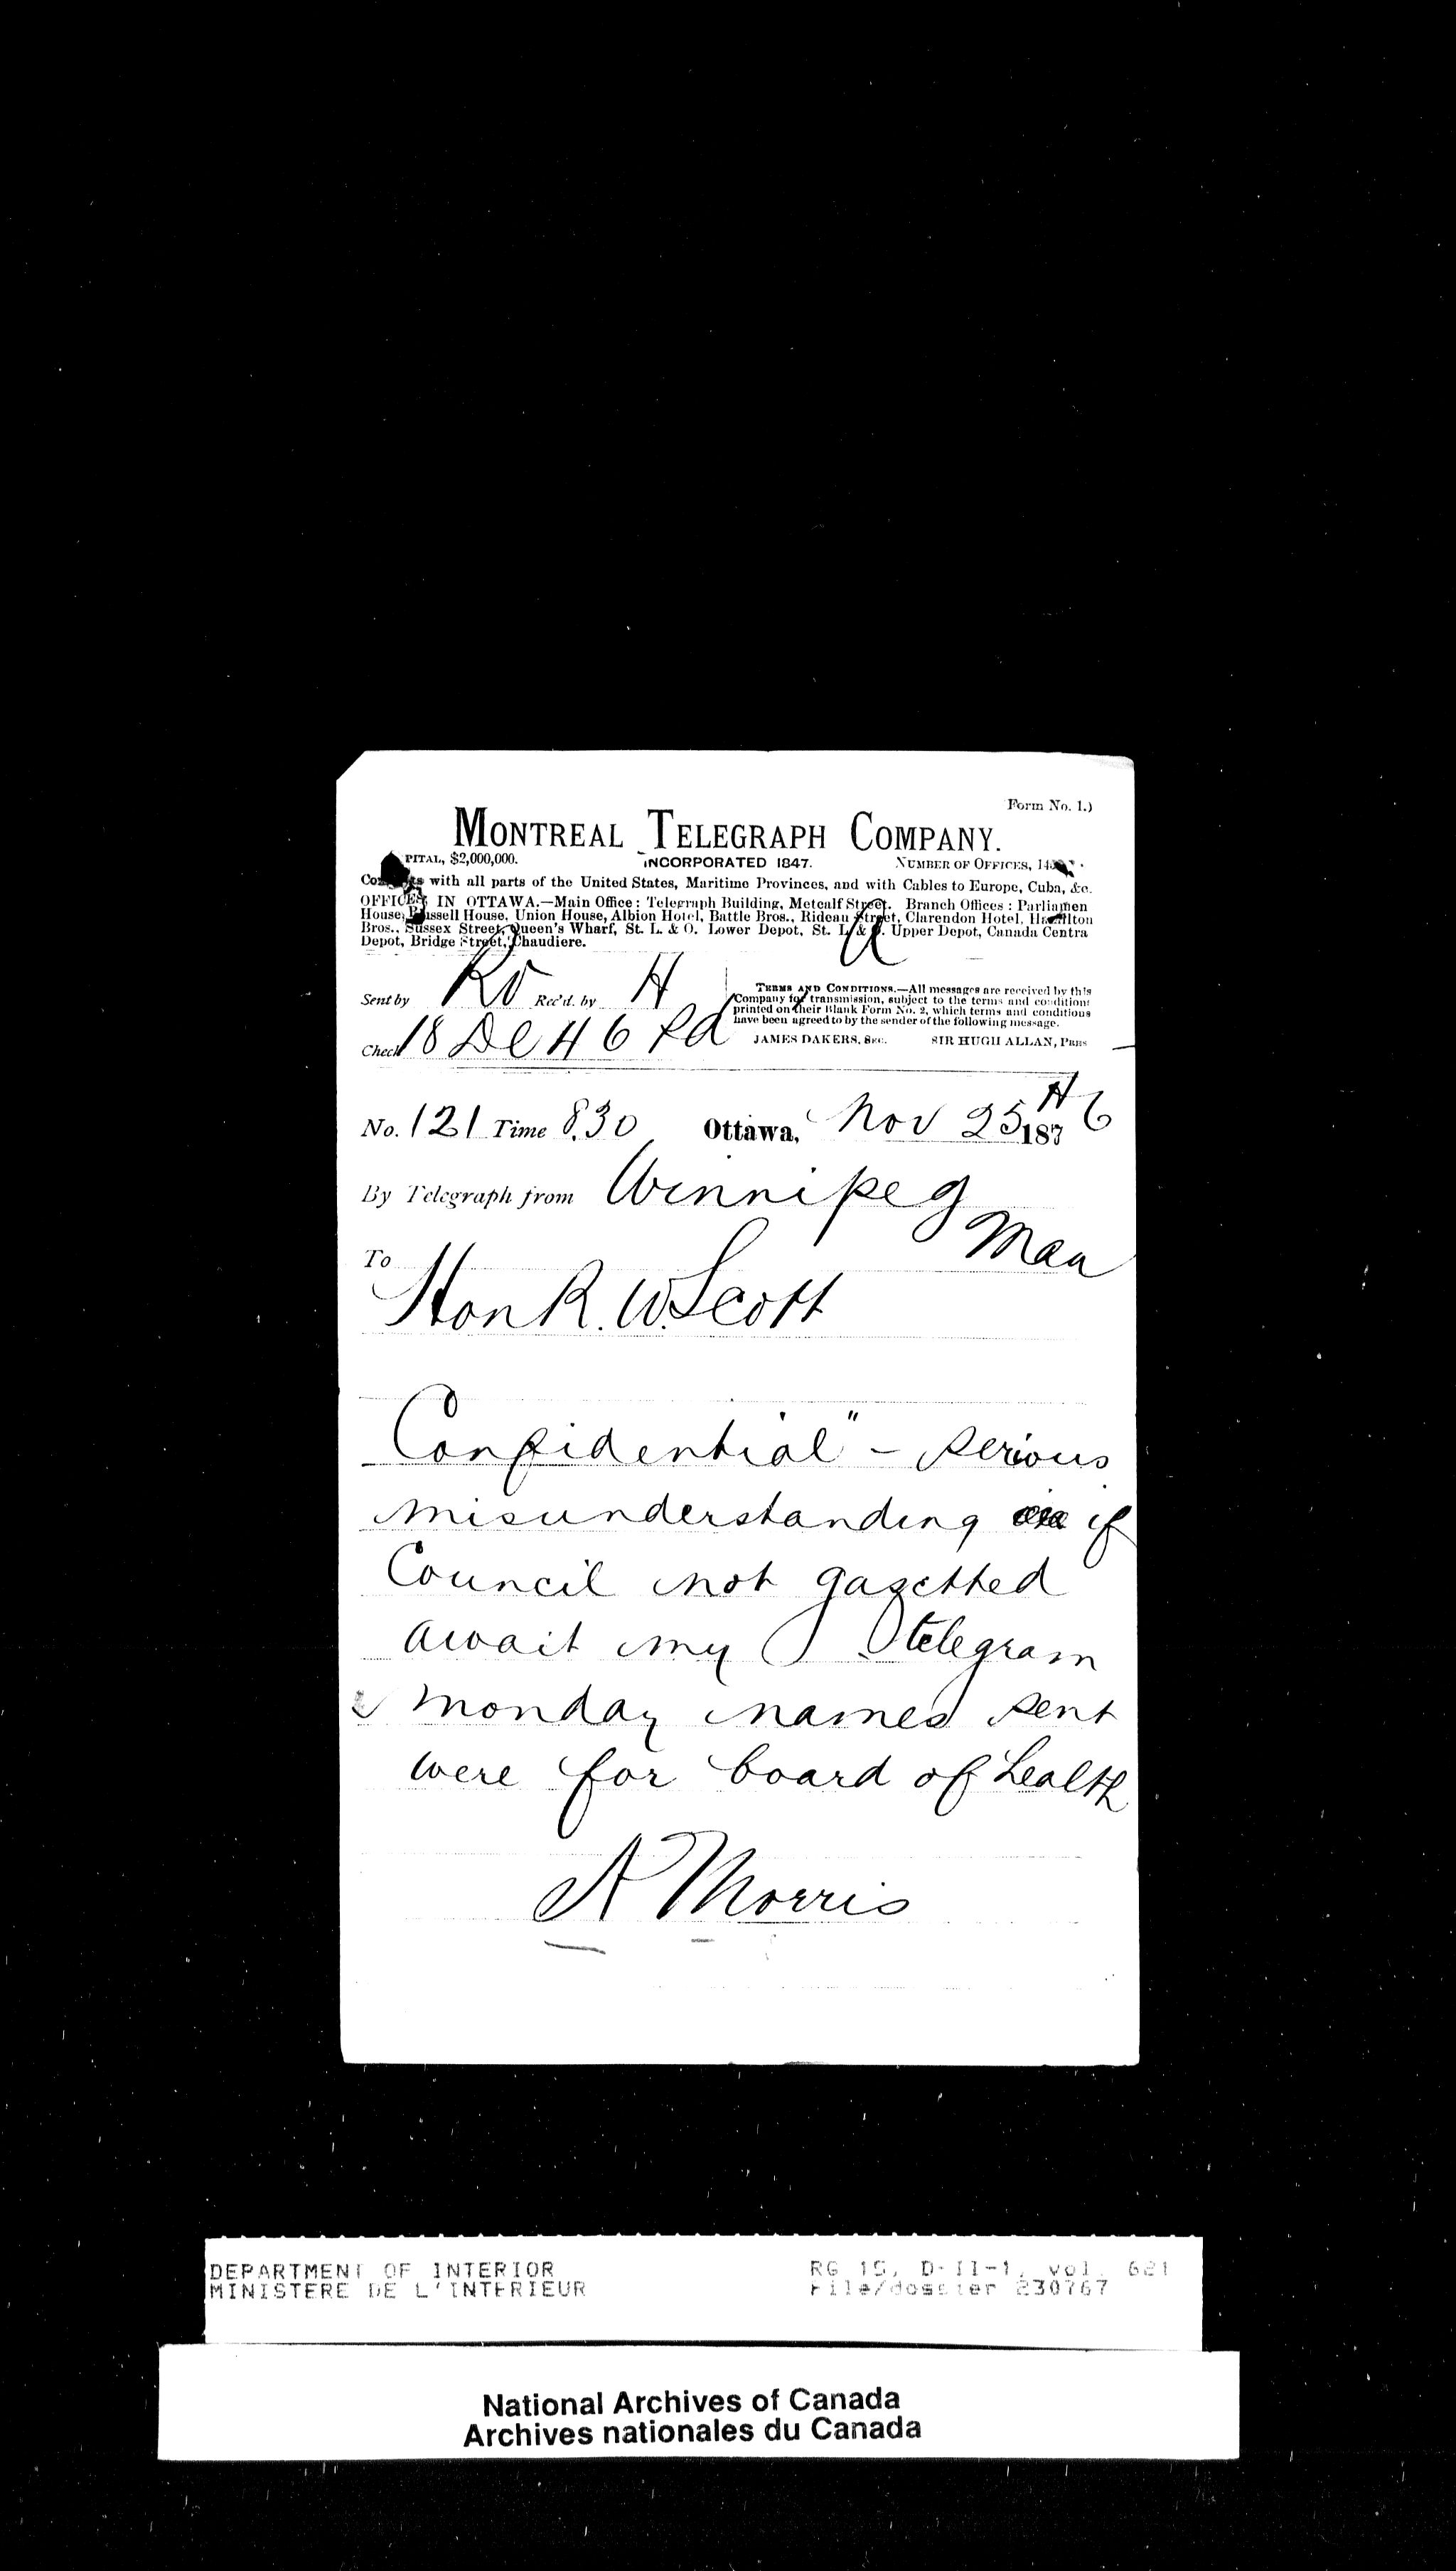 Form No. 1.)
MONTREAL TELEGRAPH COMPANY.
PITAL, $2,000,000. INCORPORATED 1847. NUMBER OF OFFICES,
with all parts of the United States, Maritime Provinces, and with Cables to Europe, Cuba, &c.
OFFICES IN OTTAWA.—Main Office: Telegraph Building, Metcalf Street. Branch Offices: Parliamen
House, Russell House, Union House, Albion Hotel, Battle Bros., Rideau Street, Clarendon Hotel, Hamilton
Bros., Sussex Street, Queen's Wharf, St. L. & O. Lower Depot, St. L. & O. Upper Depot, Canada Centra
Depot, Bridge Street, Chaudiere.
Sent by Rec'd. by H
TERMS AND CONDITIONS.—All messages are received by this
Company for transmission, subject to the terms and conditions
printed on their Blank Form No. 2, which terms and conditions
have been agreed to by the sender of the following message.
JAMES DAKERS, SEC. SIR HUGH ALLAN, PRES
Check 18 DH 46 Pd
No. 121 Time 8.30 Ottawa, Nov 25 H 1876
By Telegraph from Winnipeg
Man
To
Hon R. W. Scott
Confidential" - serious
misunderstanding if
Council not gazetted
await my telegram
monday names sent
were for board of health
A Morris
DEPARTMENT OF INTERIOR RG 15, D-II-1, vol. 621
MINISTERE DE L'INTERIEUR File/dossier 230767
National Archives of Canada
Archives nationales du Canada